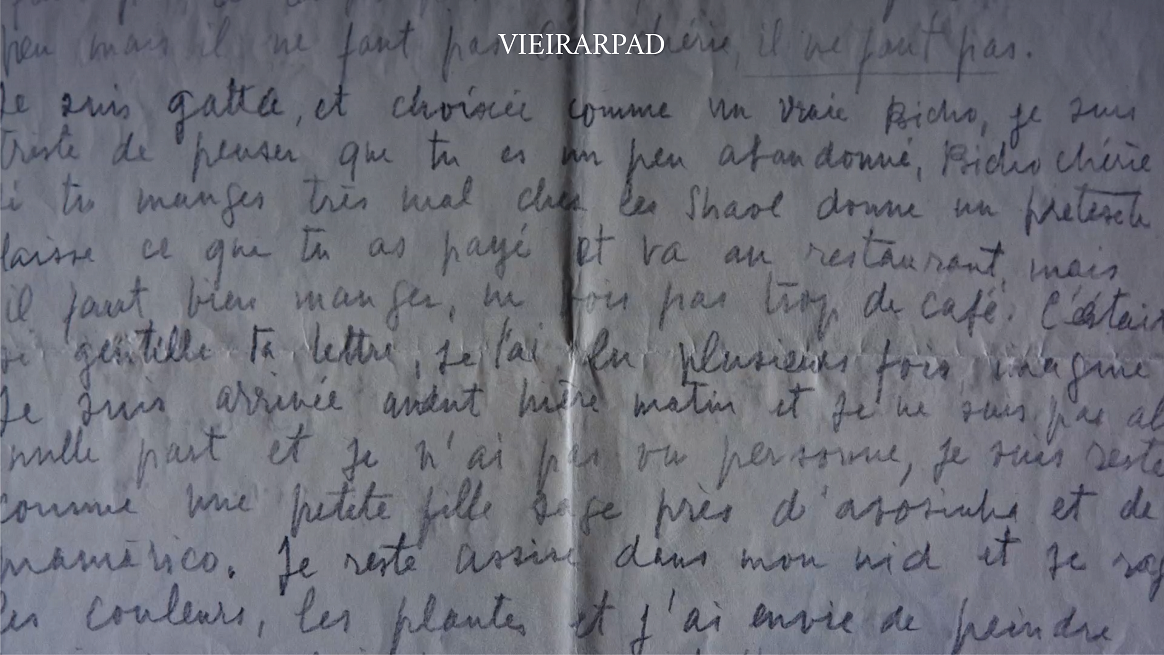 VIEIRARPAD
peu mais il ne faut pas chérie, il ne faut pas.
Je suis gattée, et choisie comme un vraie Bicho, je suis
triste de penser que tu es un peu abandonné, Bicho chérie
si tu manges très mal chez les donne un pretexte
laisse ce que tu as payé et va au restaurant, mais
il faut bien manger, ne bois pas trop de café. C'était
si gentille ta lettre, je l'ai lu plusieurs fois imagine
Je suis arrivée avant hière matin et je ne suis pas al
nulle part et je n'ai pas vu personne, je suis resté
comme une petite fille sage près d'avosinha et de
mamarico. Je reste assise dans mon nid et je
les couleurs, les plantes et j'ai envie de peindre